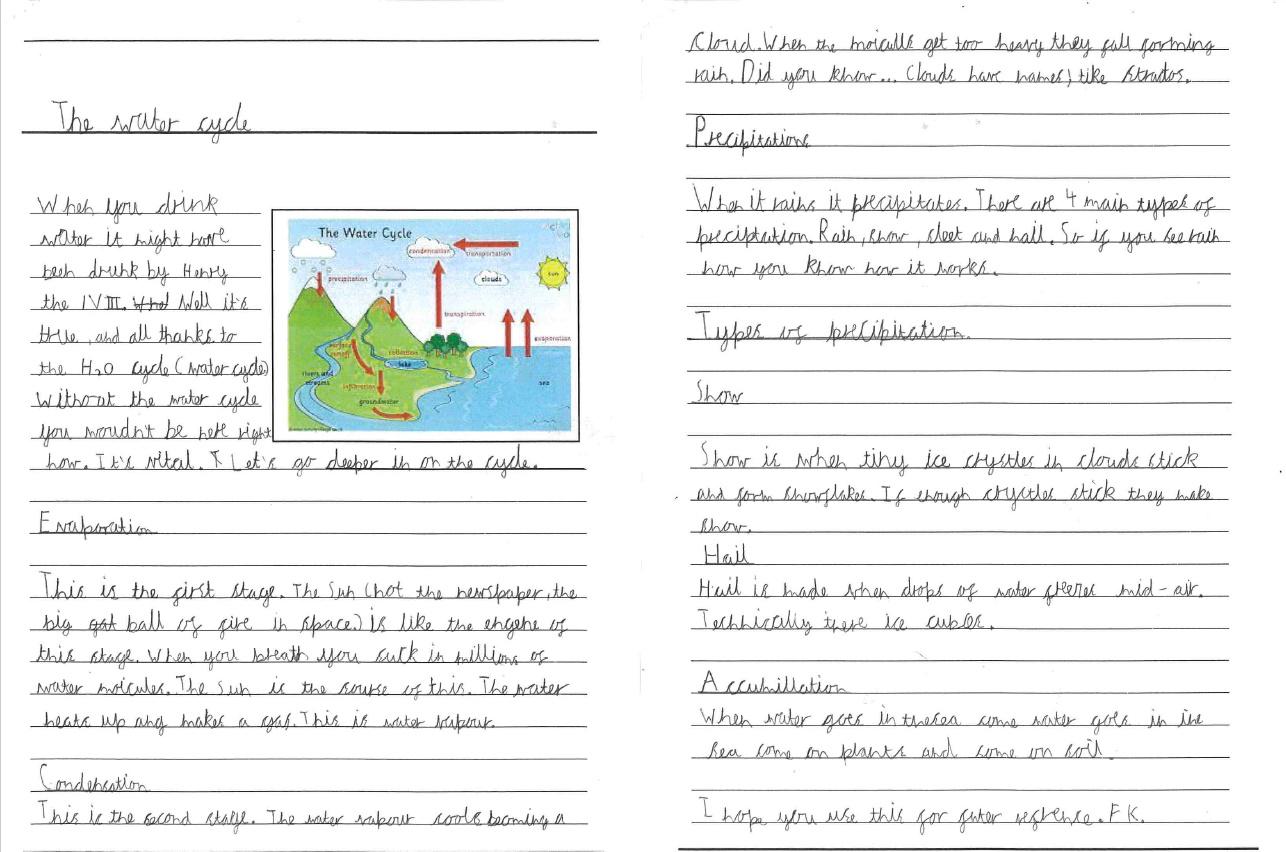 The water cycle
When you drink
water it might have
been drunk by Henry
the IVIII. What Well it's
true, and all thanks to
the H₂O cycle (water cycle)
Without the water cycle
you wouldn't be here right
now. It's vital. Let's go deeper in on the cycle.
The Water Cycle
condensation
transportation
precipitation
clouds
sun
transpiration
evaporation
surface
runoff
collection
lake
rivers and
streams
infiltration
groundwater
sea
Evaporation
This is the first stage. The Sun (not the newspaper, the
big gat ball of fire in space.) is like the engene of
this stage. When you breath you suck in millions of
water molcules. The Sun is the sourse of this. The water
heats up and makes a gas. This is water vapour.
Condensation
This is the second stage. The water vapour cools becoming a
Cloud. When the molculls get too heavy they fall forming
rain. Did you know... Clouds have names, like stratos.
Precipitation
When it rains it precipitates. There are 4 main types of
preciptation. Rain, snow, sleet and hail. So if you see rain
now you know how it works.
Types of precipitation.
Snow
Snow is when tiny ice crystles in clouds stick
and form snowflakes. If enough crystles stick they make
snow.
Hail
Hail is made when drops of water freeres mid-air.
Technically there ice cubes.
Accumillation
When water goes in the sea some water goes in the
sea some on plants and some on soil.
I hope you use this for futer refrence. F K.